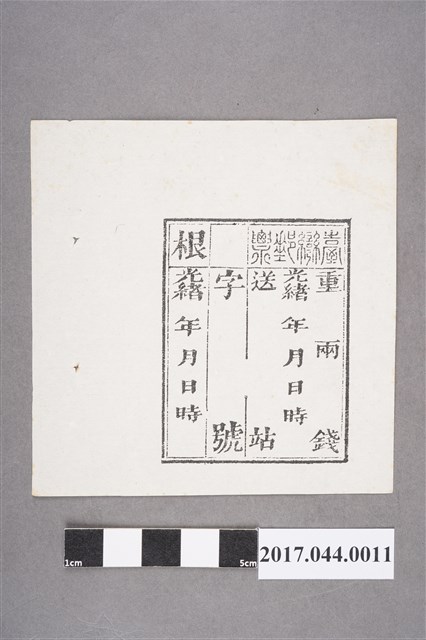 臺灣郵票
重 兩 錢
光緒 年 月 日 時
送 站
字 號
根
光緒 年 月 日 時
1cm 5cm
2017.044.0011